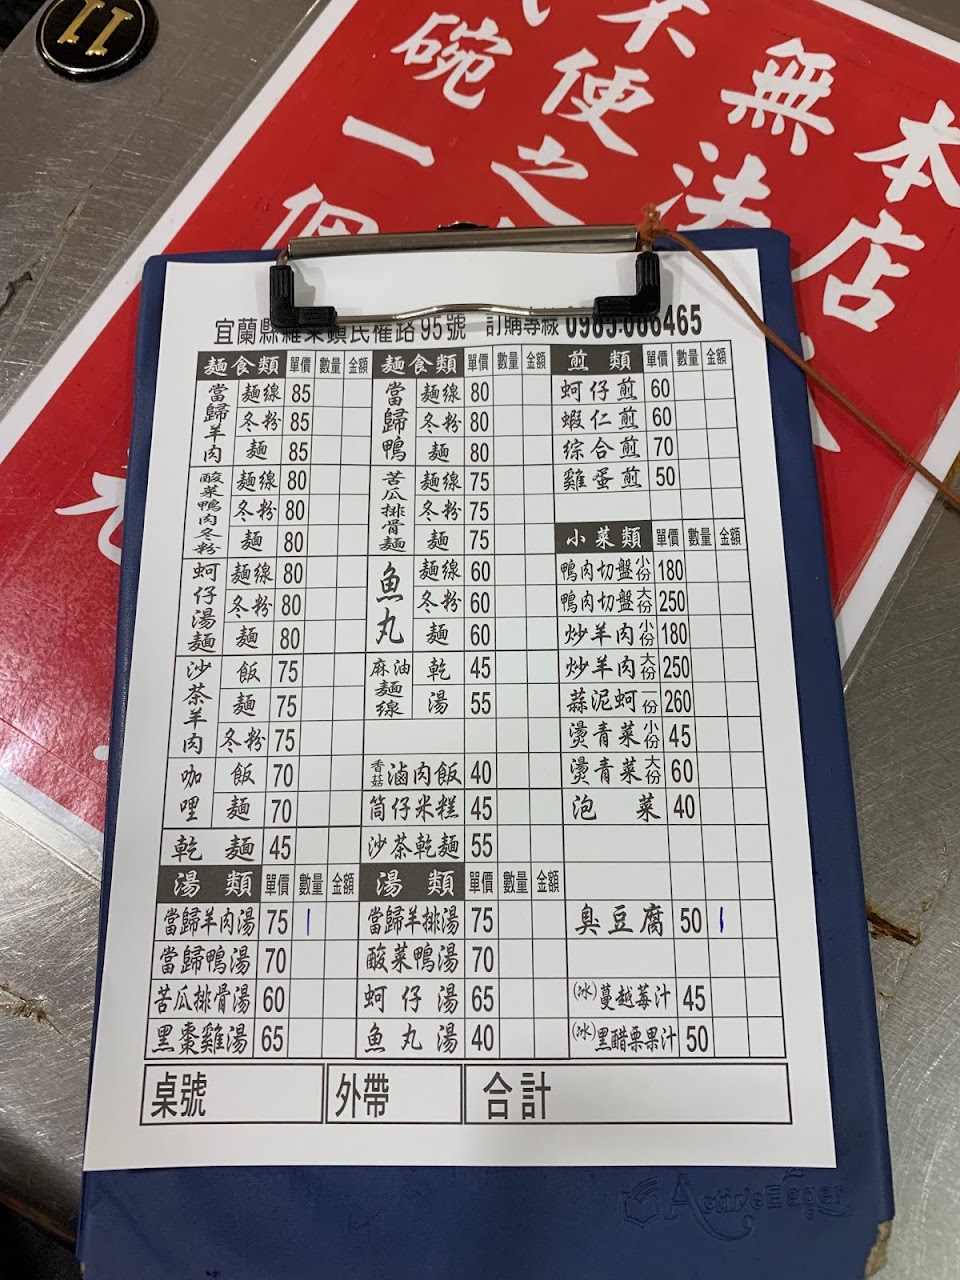 11
本店
無法
不便之
碗一個
宜蘭縣羅東鎮民權路95號 訂購專線 0983-086465
麵食類 單價 數量 金額 麵食類 單價 數量 金額 煎類 單價 數量 金額
當歸羊肉 麵線 85 當歸鴨 麵線 80 蚵仔煎 60
冬粉 85 冬粉 80 蝦仁煎 60
麵 85 麵 80 綜合煎 70
酸菜鴨肉冬粉 麵線 80 苦瓜排骨麵 麵線 75 雞蛋煎 50
冬粉 80 冬粉 75
麵 80 麵 75 小菜類 單價 數量 金額
蚵仔湯麵 麵線 80 魚丸 麵線 60 鴨肉切盤小份 180
冬粉 80 冬粉 60 鴨肉切盤大份 250
麵 80 麵 60 炒羊肉小份 180
沙茶羊肉 飯 75 麻油麵線 乾 45 炒羊肉大份 250
麵 75 湯 55 蒜泥蚵一份 260
冬粉 75 燙青菜小份 45
咖哩 飯 70 香菇滷肉飯 40 燙青菜大份 60
麵 70 筒仔米糕 45 泡菜 40
乾麵 45 沙茶乾麵 55
湯類 單價 數量 金額 湯類 單價 數量 金額
當歸羊肉湯 75 1 當歸羊排湯 75 臭豆腐 50 1
當歸鴨湯 70 酸菜鴨湯 70
苦瓜排骨湯 60 蚵仔湯 65 (冰)蔓越莓汁 45
黑棗雞湯 65 魚丸湯 40 (冰)黑醋栗果汁 50
桌號 外帶 合計